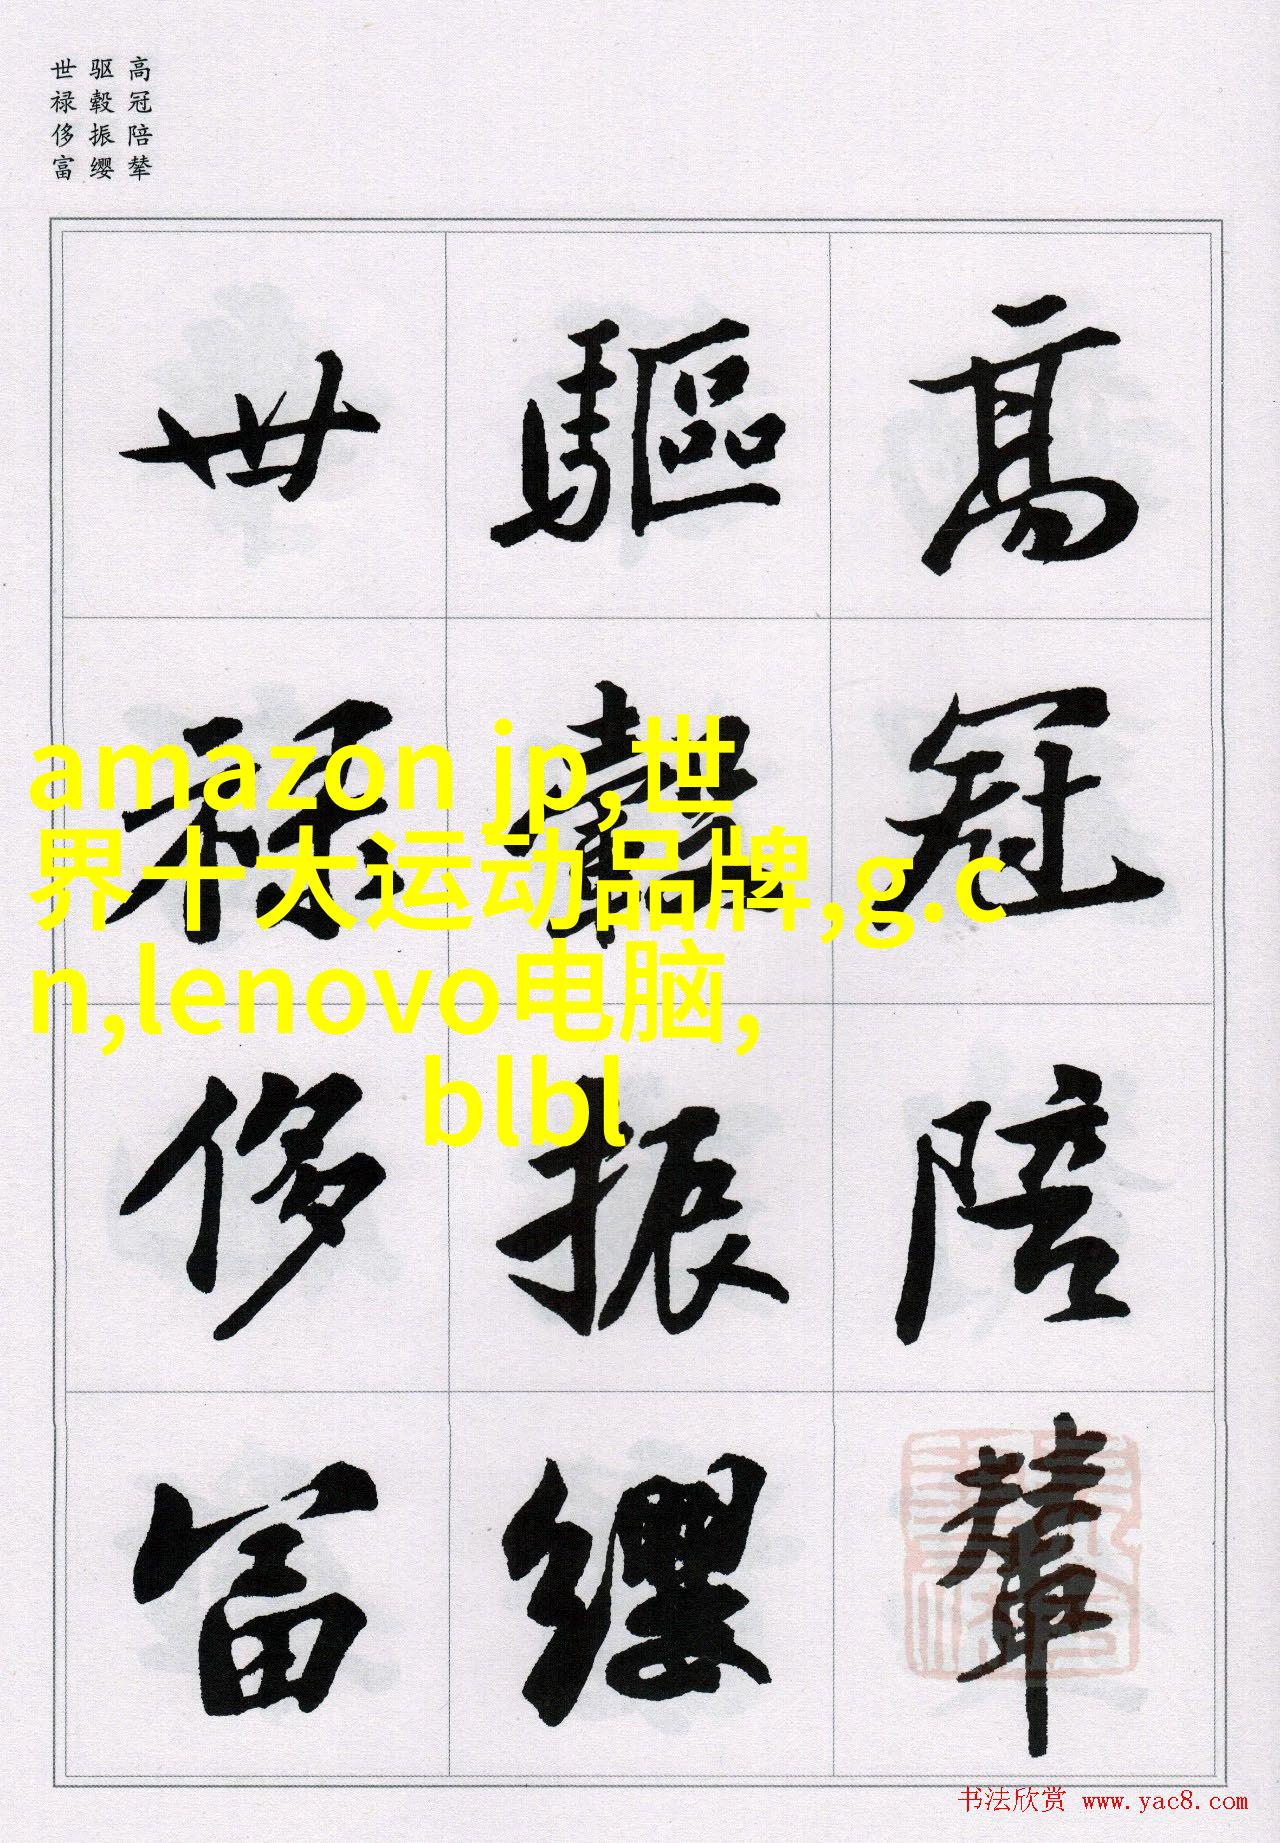 高冠陪辇
驱毂振缨
世禄侈富
高冠陪輦
驅轂振纓
世禄侈富
amazon jp,世
界十大运动品牌,g.c
n,lenovo电脑,
blbl
书法欣赏 www.yac8.com